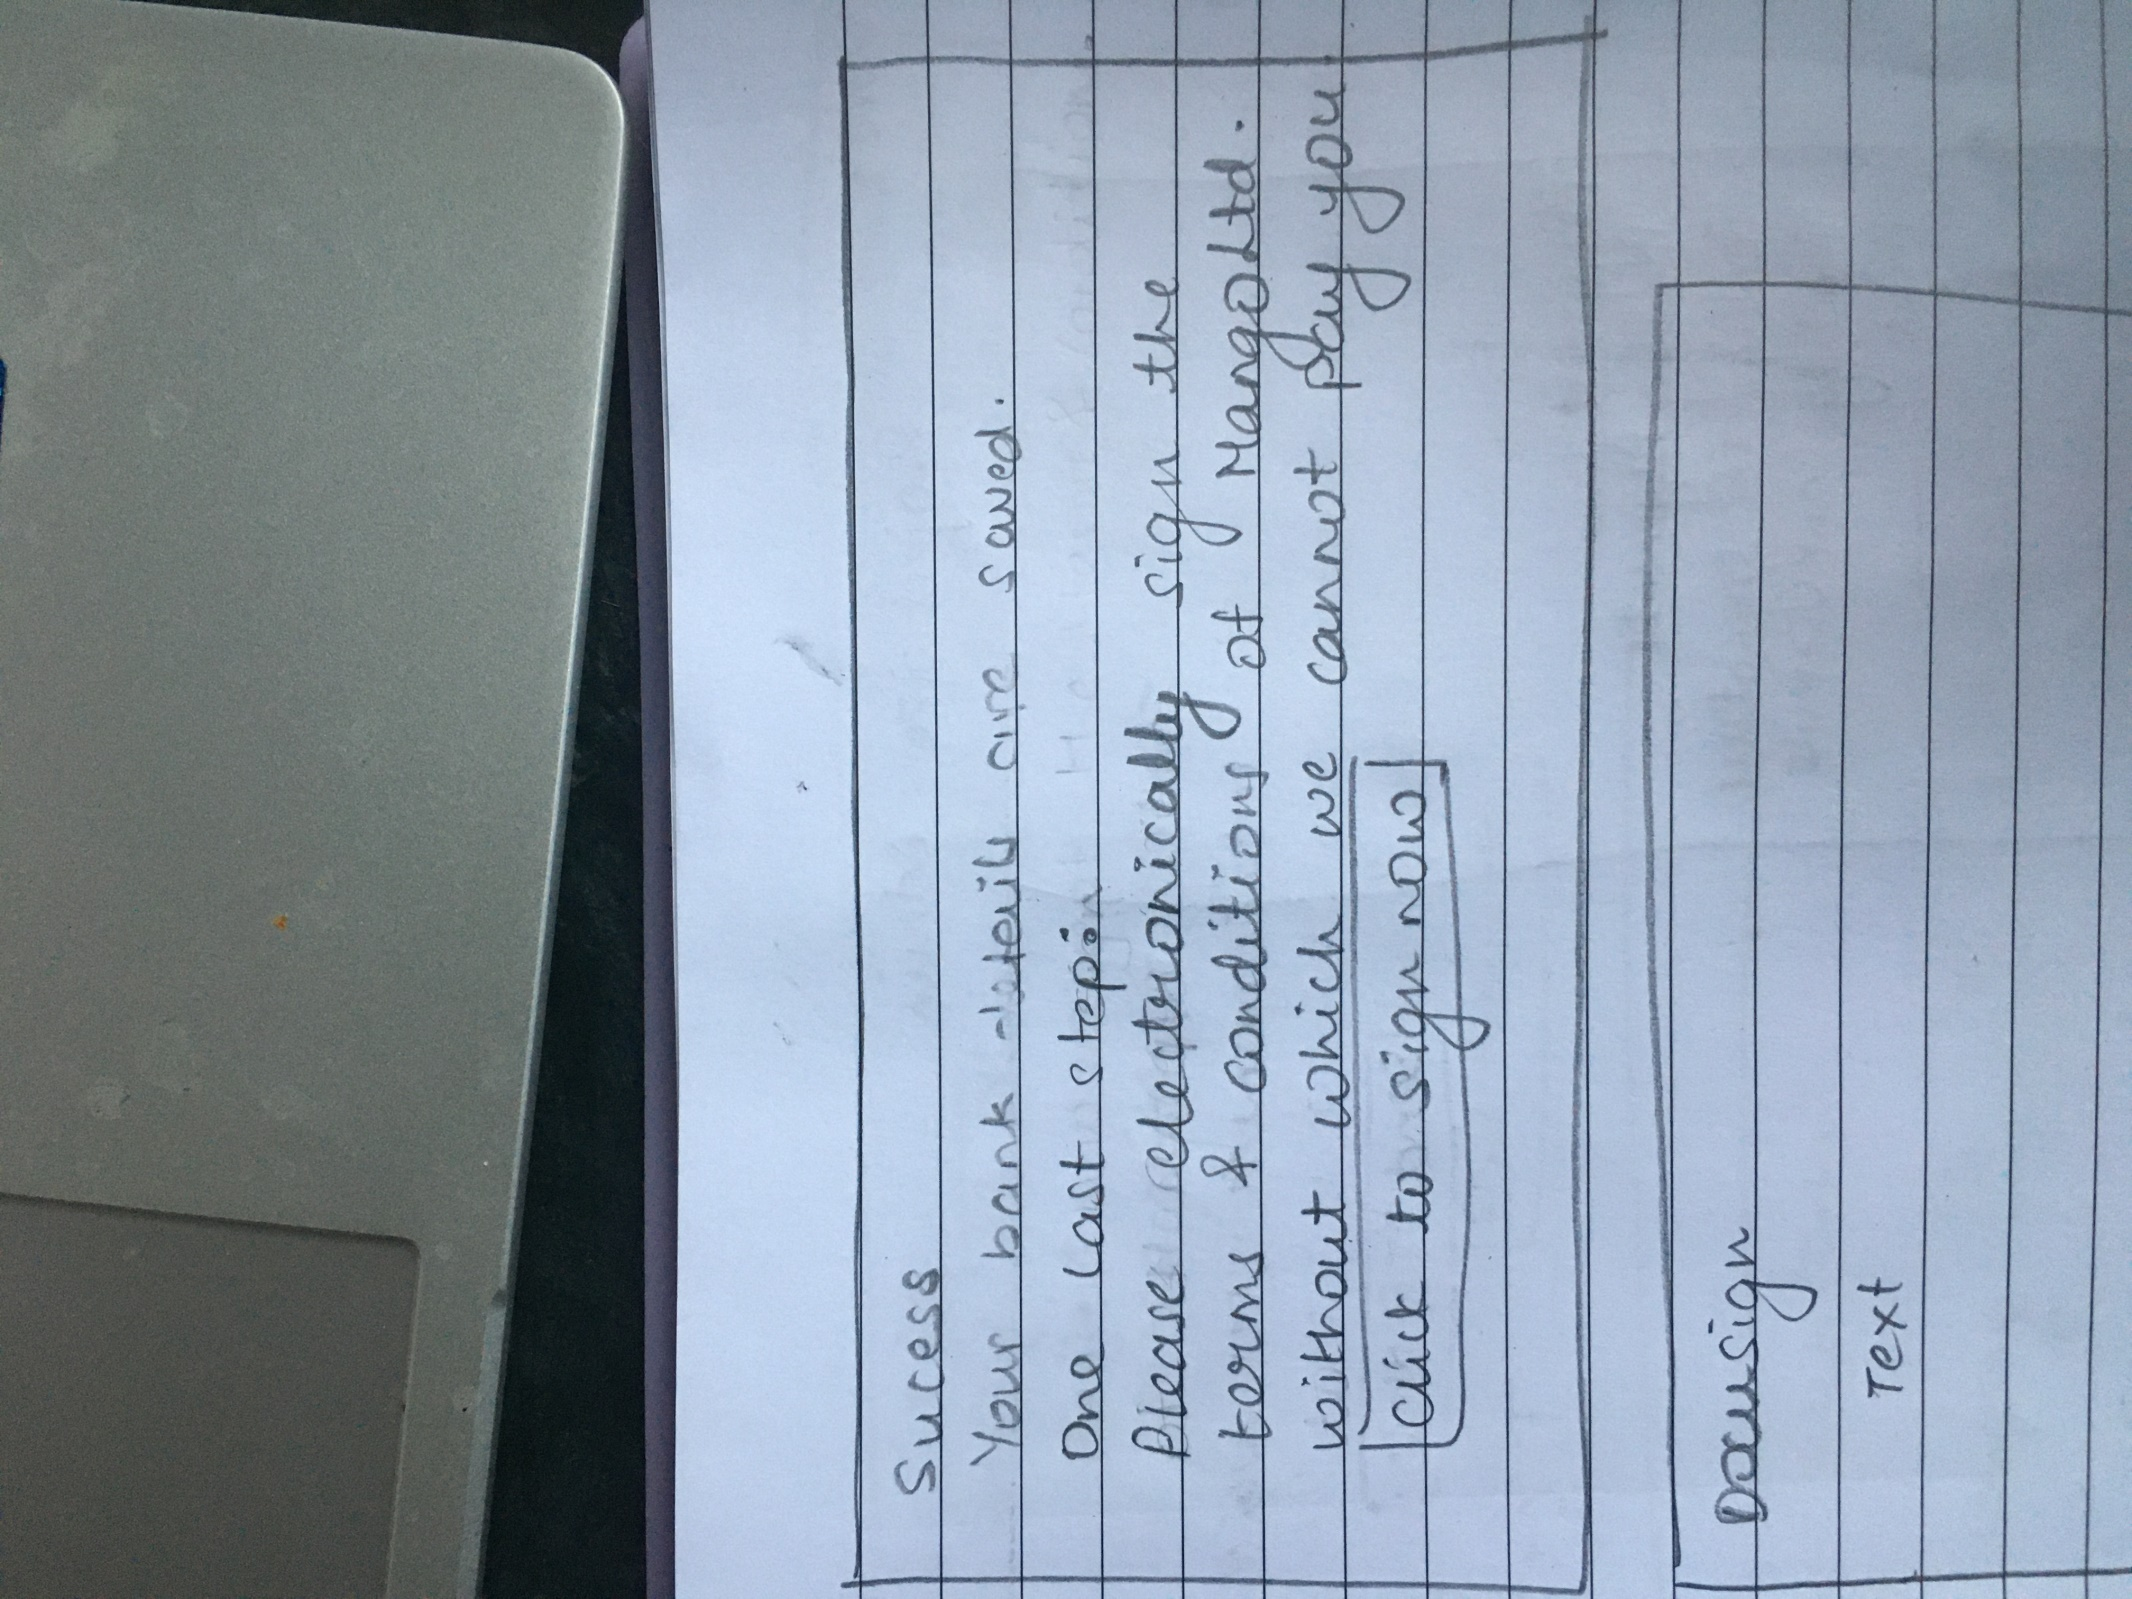 Success
Your bank details are saved.
One last step:
Please electronically sign the
terms & conditions of Mango Ltd.
without which we cannot pay you
Click to sign now
Docusign
Text